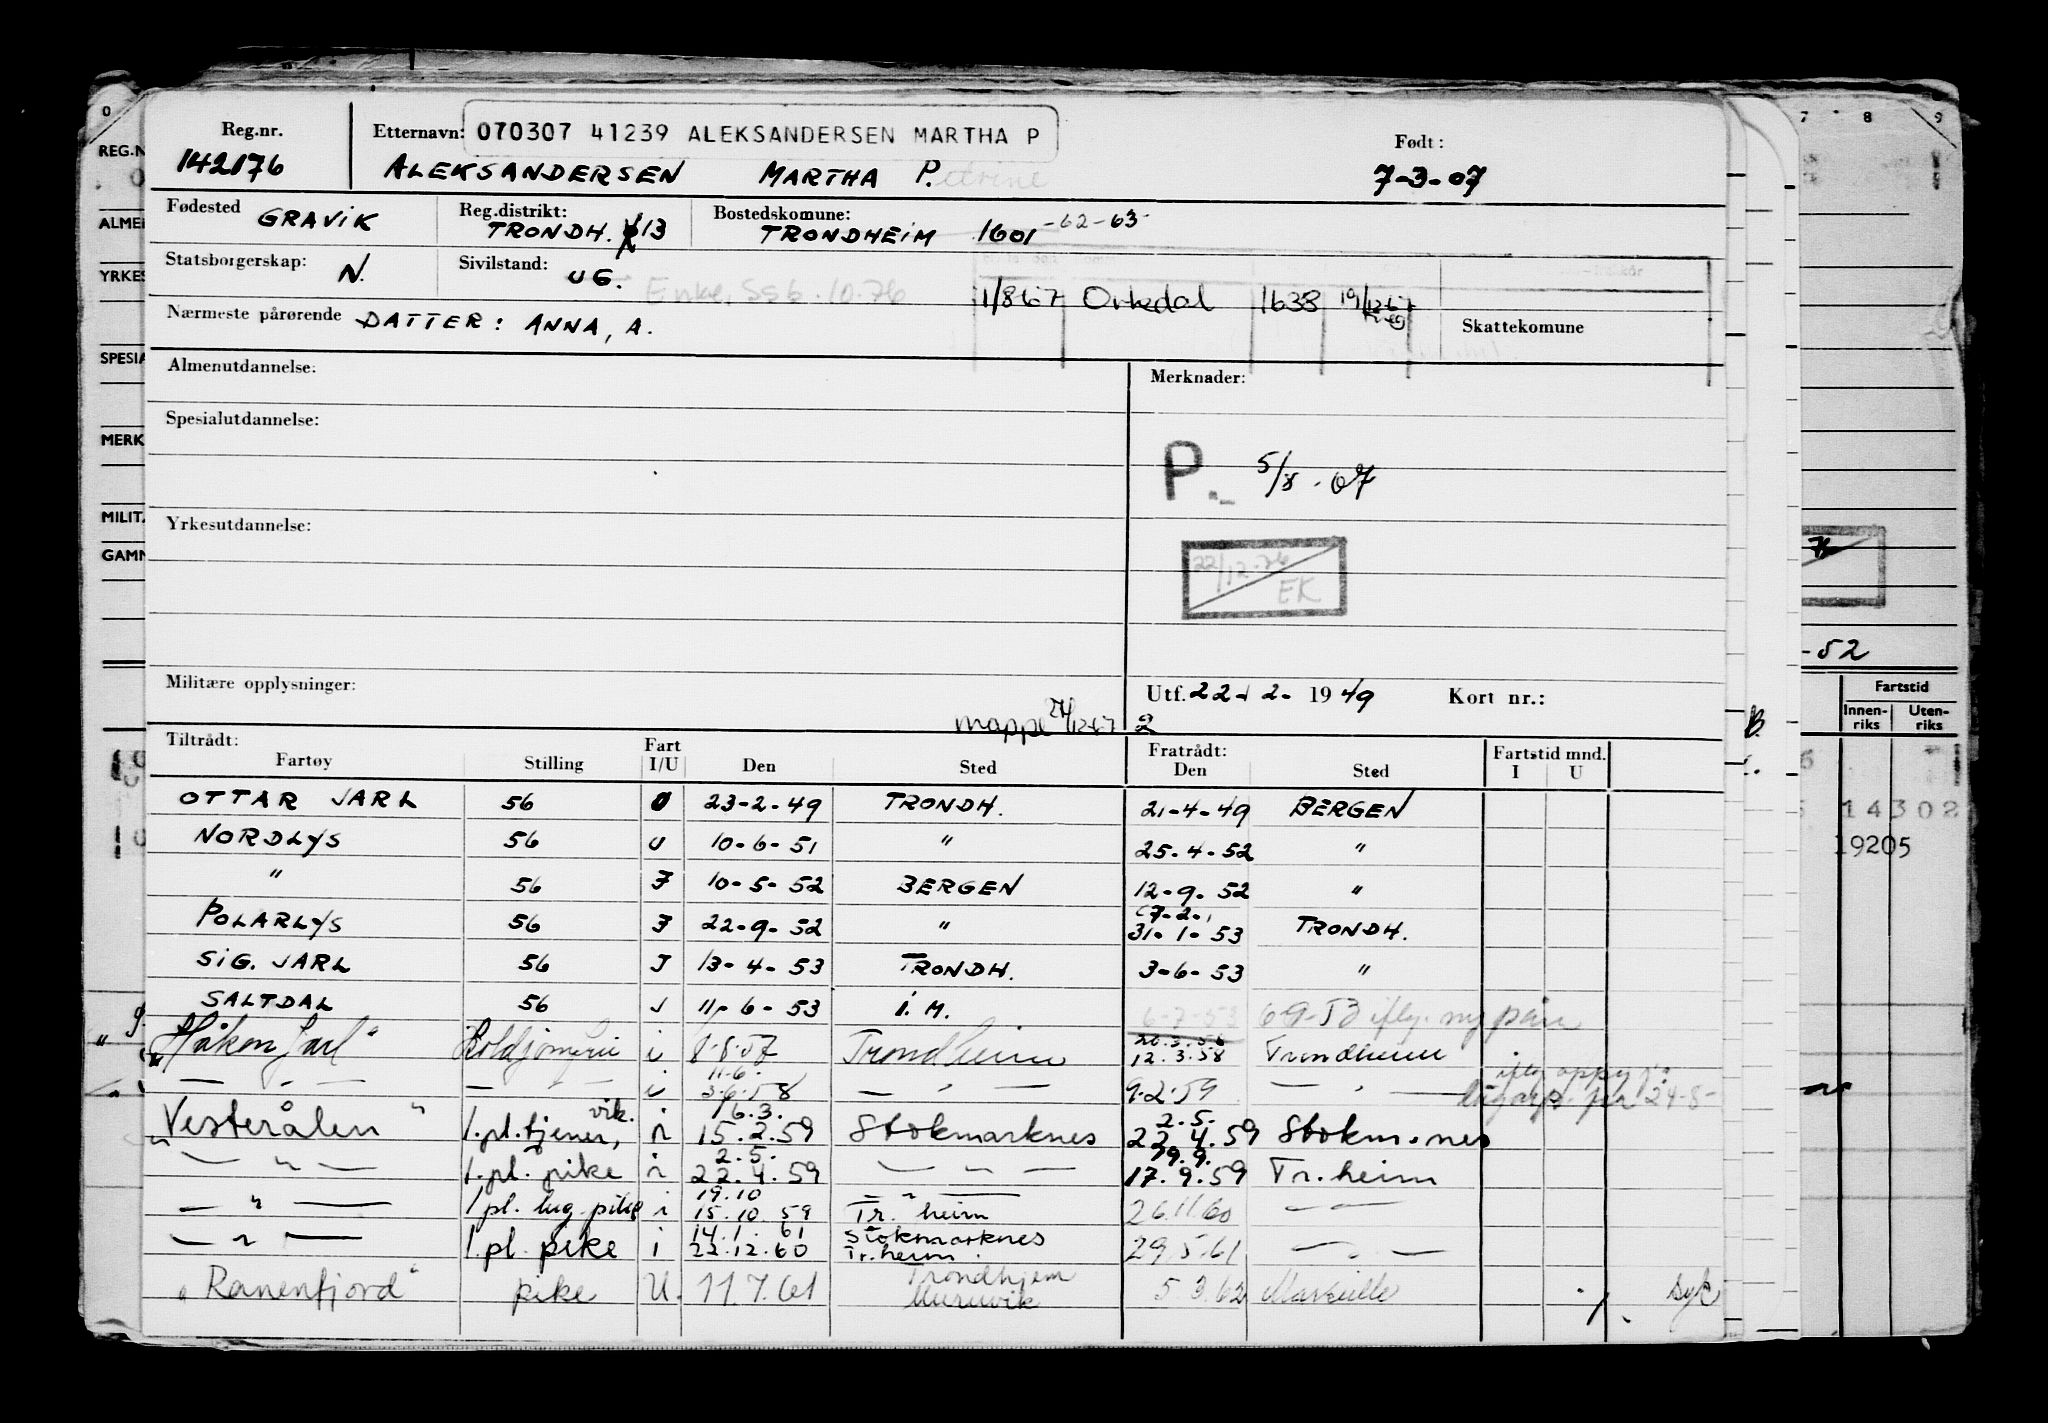 Reg.nr. 142176
Etternavn: 070307 41239 ALEKSANDERSEN MARTHA P
ALEKSANDERSEN MARTHA P.etrine
Født: 7-3-07
Fødested GRAVIK
Reg.distrikt: TRONDH. 13
Bostedskomune: TRONDHEIM 1601 -62-63-
Statsborgerskap: N.
Sivilstand: UG.
Enke, Ss 6.10.76
1/8 67 Orkedal 1638
Nærmeste pårørende DATTER: ANNA, A.
Skattekomune
Almenutdannelse:
Merknader:
Spesialutdannelse:
P. 5/8-67
Yrkesutdannelse:
22/12-76 EK
Militære opplysninger:
Utf. 22-2-1949 Kort nr.:
mappe 2
Tiltrådt: Fratrådt:
Fartøy Stilling Fart I/U Den Sted Den Sted Fartstid mnd. I U
OTTAR JARL 56 U 23-2-49 TRONDH. 21-4-49 BERGEN
NORDLYS 56 U 10-6-51 " 25.4.52 "
" 56 I 10-5-52 BERGEN 12-9.52 "
7-2-
POLARLYS 56 I 22-9-52 " 31-1-53 TRONDH.
SIG. JARL 56 I 13-4-53 TRONDH. 3-6-53 "
SALTDAL 56 I 11-6-53 I.M. 6-7-53
"Håkon Jarl" i 8.8.57 Trondheim 12.3.58 Trondheim
11.6.
— " — — " — i 3.6.58 — " — 9.2.59 — " —
vik. 16.3. 2.5.
"Vesterålen" 1.pl.tjener, i 15.2.59 Stokmarknes 22.4.59 Stokm.nes
2.5. 19.9.
— " — 1.pl. pike i 22.4.59 — " — 17.9.59 Tr.heim
19.10 — " —
— " — 1 pl. lug. pike i 15.10.59 Tr. heim 26.11.60 — " —
14.1.61 Stokmarknes
— " — 1.pl. pike i 22.12.60 Tr.heim. 29.5.61 — " —
Trondhjem
"Ranenfjord" pike U. 11.7.61 Muruvik 5.3.62 Marseille syk
0
REG.N
ALME
YRKES
SPESIA
MERK
MILIT.
GAMM
7 8 9
-52
Fartstid
Innen-riks Uten-riks
14302
19205